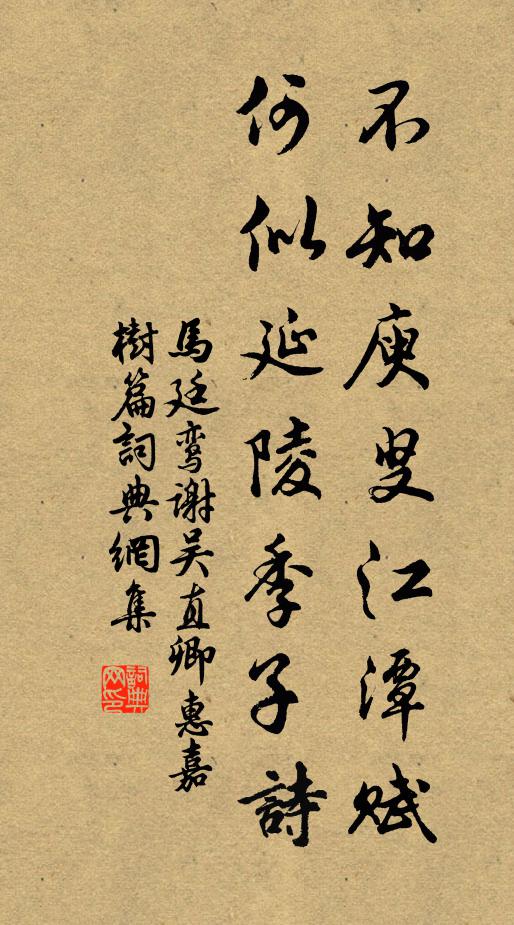 不知庾叟江潭賦
何似延陵季子詩
馬廷鸞謝吴直卿惠嘉
樹篇詞典網集
詞典网印